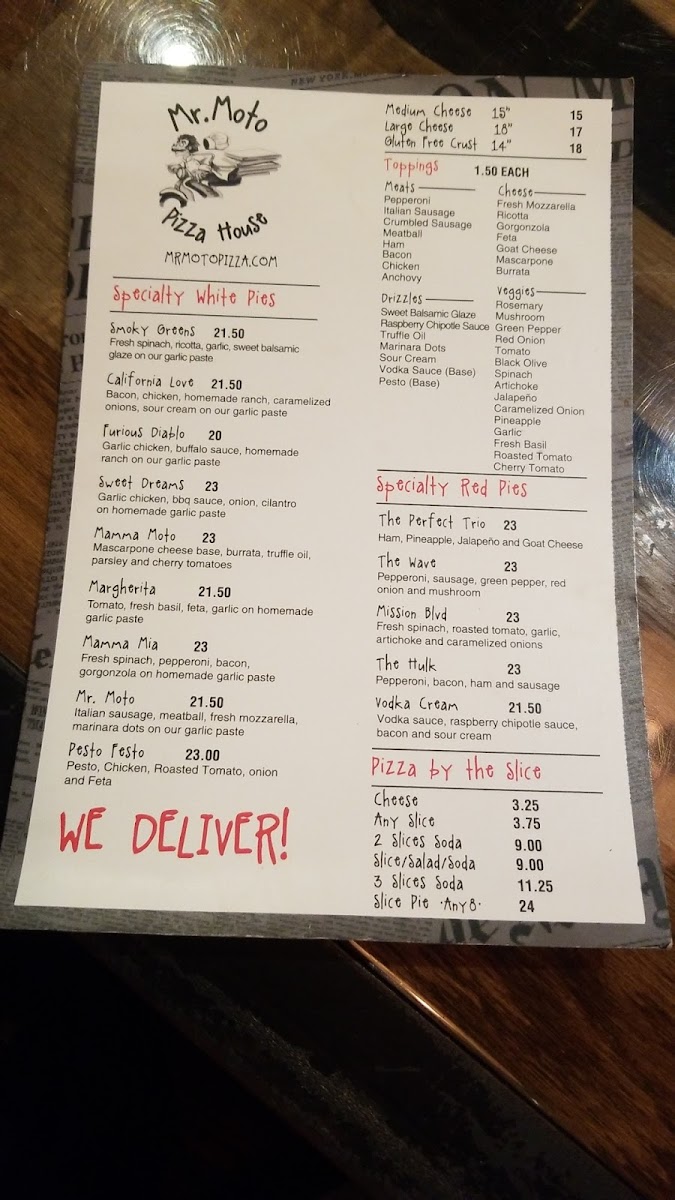 NEW YORK
Mr. Moto
Pizza House
MRMOTOPIZZA.COM
Specialty White Pies
Smoky Greens 21.50
Fresh spinach, ricotta, garlic, sweet balsamic
glaze on our garlic paste
California Love 21.50
Bacon, chicken, homemade ranch, caramelized
onions, sour cream on our garlic paste
Furious Diablo 20
Garlic chicken, buffalo sauce, homemade
ranch on our garlic paste
Sweet Dreams 23
Garlic chicken, bbq sauce, onion, cilantro
on homemade garlic paste
Mamma Moto 23
Mascarpone cheese base, burrata, truffle oil,
parsley and cherry tomatoes
Margherita 21.50
Tomato, fresh basil, feta, garlic on homemade
garlic paste
Mamma Mia 23
Fresh spinach, pepperoni, bacon,
gorgonzola on homemade garlic paste
Mr. Moto 21.50
Italian sausage, meatball, fresh mozzarella,
marinara dots on our garlic paste
Pesto Festo 23.00
Pesto, Chicken, Roasted Tomato, onion
and Feta
WE DELIVER!
Medium Cheese 15" 15
Large Cheese 18" 17
Gluten Free Crust 14" 18
Toppings 1.50 EACH
Meats
Pepperoni
Italian Sausage
Crumbled Sausage
Meatball
Ham
Bacon
Chicken
Anchovy
Drizzles
Sweet Balsamic Glaze
Raspberry Chipotle Sauce
Truffle Oil
Marinara Dots
Sour Cream
Vodka Sauce (Base)
Pesto (Base)
Cheese
Fresh Mozzarella
Ricotta
Gorgonzola
Feta
Goat Cheese
Mascarpone
Burrata
Veggies
Rosemary
Mushroom
Green Pepper
Red Onion
Tomato
Black Olive
Spinach
Artichoke
Jalapeño
Caramelized Onion
Pineapple
Garlic
Fresh Basil
Roasted Tomato
Cherry Tomato
Specialty Red Pies
The Perfect Trio 23
Ham, Pineapple, Jalapeño and Goat Cheese
The Wave 23
Pepperoni, sausage, green pepper, red
onion and mushroom
Mission Blvd 23
Fresh spinach, roasted tomato, garlic,
artichoke and caramelized onions
The Hulk 23
Pepperoni, bacon, ham and sausage
Vodka Cream 21.50
Vodka sauce, raspberry chipotle sauce,
bacon and sour cream
Pizza by the Slice
Cheese 3.25
Any Slice 3.75
2 Slices Soda 9.00
Slice/Salad/Soda 9.00
3 Slices Soda 11.25
Slice Pie ·Any8· 24